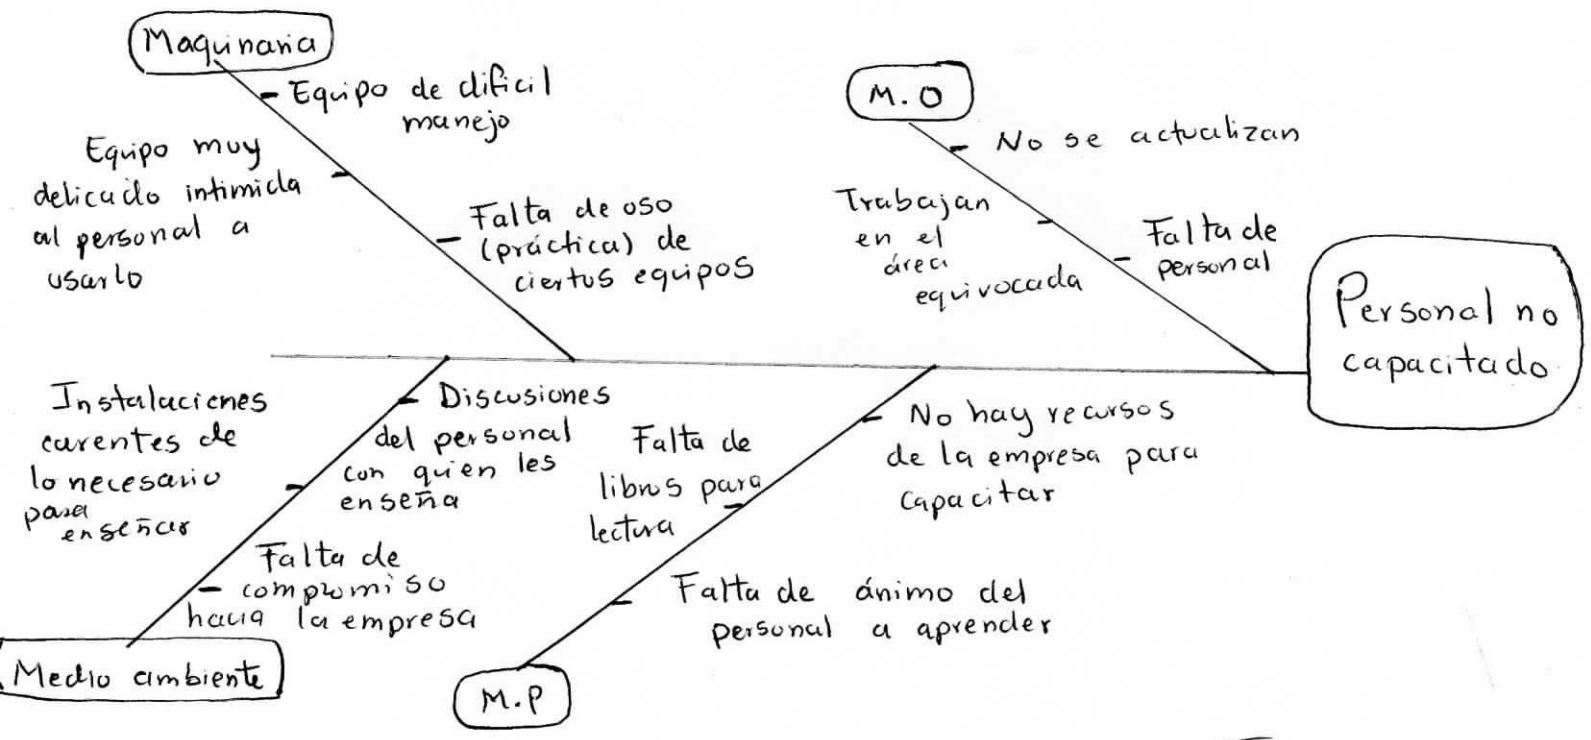 Maquinaria
- Equipo de dificil
manejo
Equipo muy
delicado intimida
al personal a
usarlo
- Falta de uso
(práctica) de
ciertos equipos
M.O
- No se actualizan
Trabajan
en el
área
equivocada
- Falta de
personal
Personal no
capacitado
Instalaciones
carentes de
lo necesario
para
enseñar
- Discusiones
del personal
con quien les
enseña
- Falta de
compromiso
hacia la empresa
Medio ambiente
Falta de
libros para
lectura
- No hay recursos
de la empresa para
capacitar
- Falta de ánimo del
personal a aprender
M.P